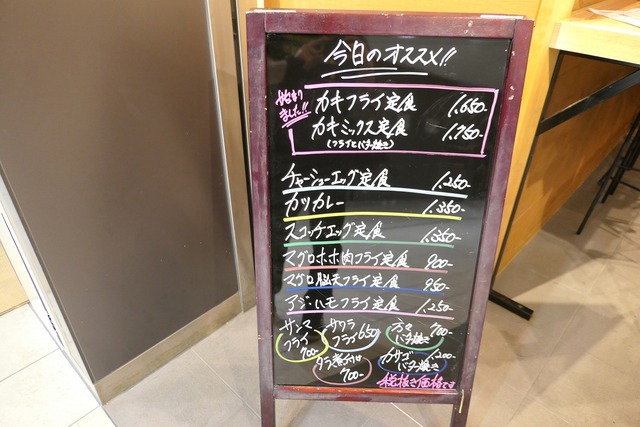 今日のオススメ!!
始まりました!!
カキフライ定食 1,650-
カキミックス定食 1,750-
(フライとバター焼き)
チャーシューエッグ定食 1,250-
カツカレー 1,350-
スコッチエッグ定食 1,350-
マグロホホ肉フライ定食 900-
マグロ脳天フライ定食 950-
アジ・ハモフライ定食 1,250-
サンマ
フライ
700-
サワラ
フライ 650-
バター焼き 700-
タラ煮付け
700-
カサゴ 1,200-
バター焼き
税抜き価格です